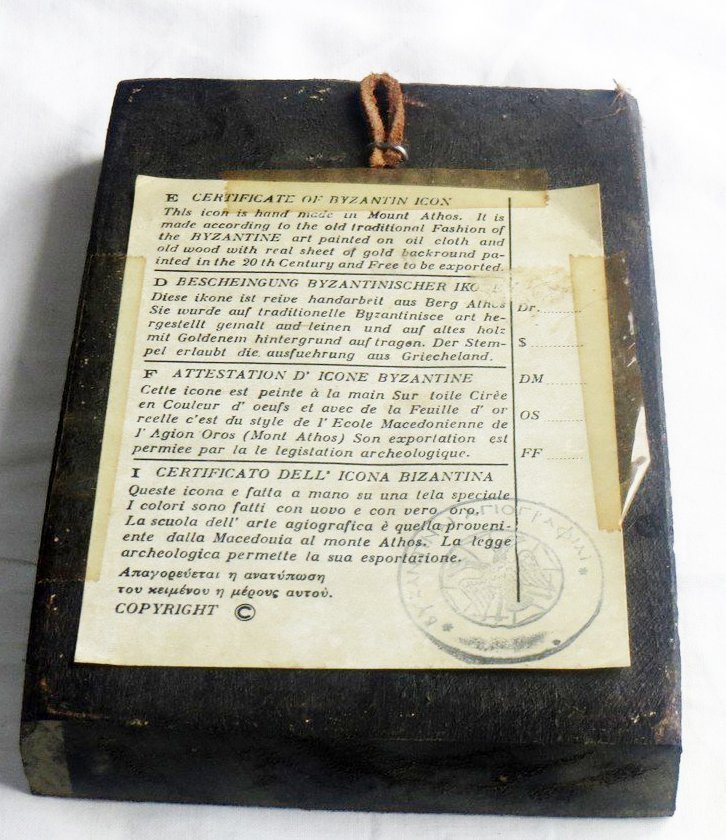 E CERTIFICATE OF BYZANTIN ICON
This icon is hand made in Mount Athos. It is
made according to the old traditional Fashion of
the BYZANTINE art painted on oil cloth and
old wood with real sheet of gold backround pa-
inted in the 20 th Century and Free to be exported.
D BESCHEINGUNG BYZANTINISCHER IKONE
Diese ikone ist reive handarbeit aus Berg Athos
Sie wurde auf traditionelle Byzantinisce art he-
rgestellt gemalt aud leinen und auf altes holz
mit Goldenem hintergrund auf tragen. Der Stem-
pel erlaubt die ausfuehrung aus Griecheland.
F ATTESTATION D' ICONE BYZANTINE
Cette icone est peinte à la main Sur toile Cirèe
en Couleur d' oeufs et avec de la Feuille d' or
rcelle c'est du style de l' Ecole Macedonienne de
l' Agion Oros (Mont Athos) Son exportation est
permiee par la le legistation archeologique.
I CERTIFICATO DELL' ICONA BIZANTINA
Queste icona e fatta a mano su una tela speciale
I colori sono fatti con uovo e con vero oro.
La scuola dell' arte agiografica è quella proveni-
ente dalla Macedouia al monte Athos. La legge
archeologica permette la sua esportazione.
Απαγορεύεται η ανατύπωση
του κειμένου η μέρους αυτού.
COPYRIGHT ©
Dr.
$
DM
OS
FF